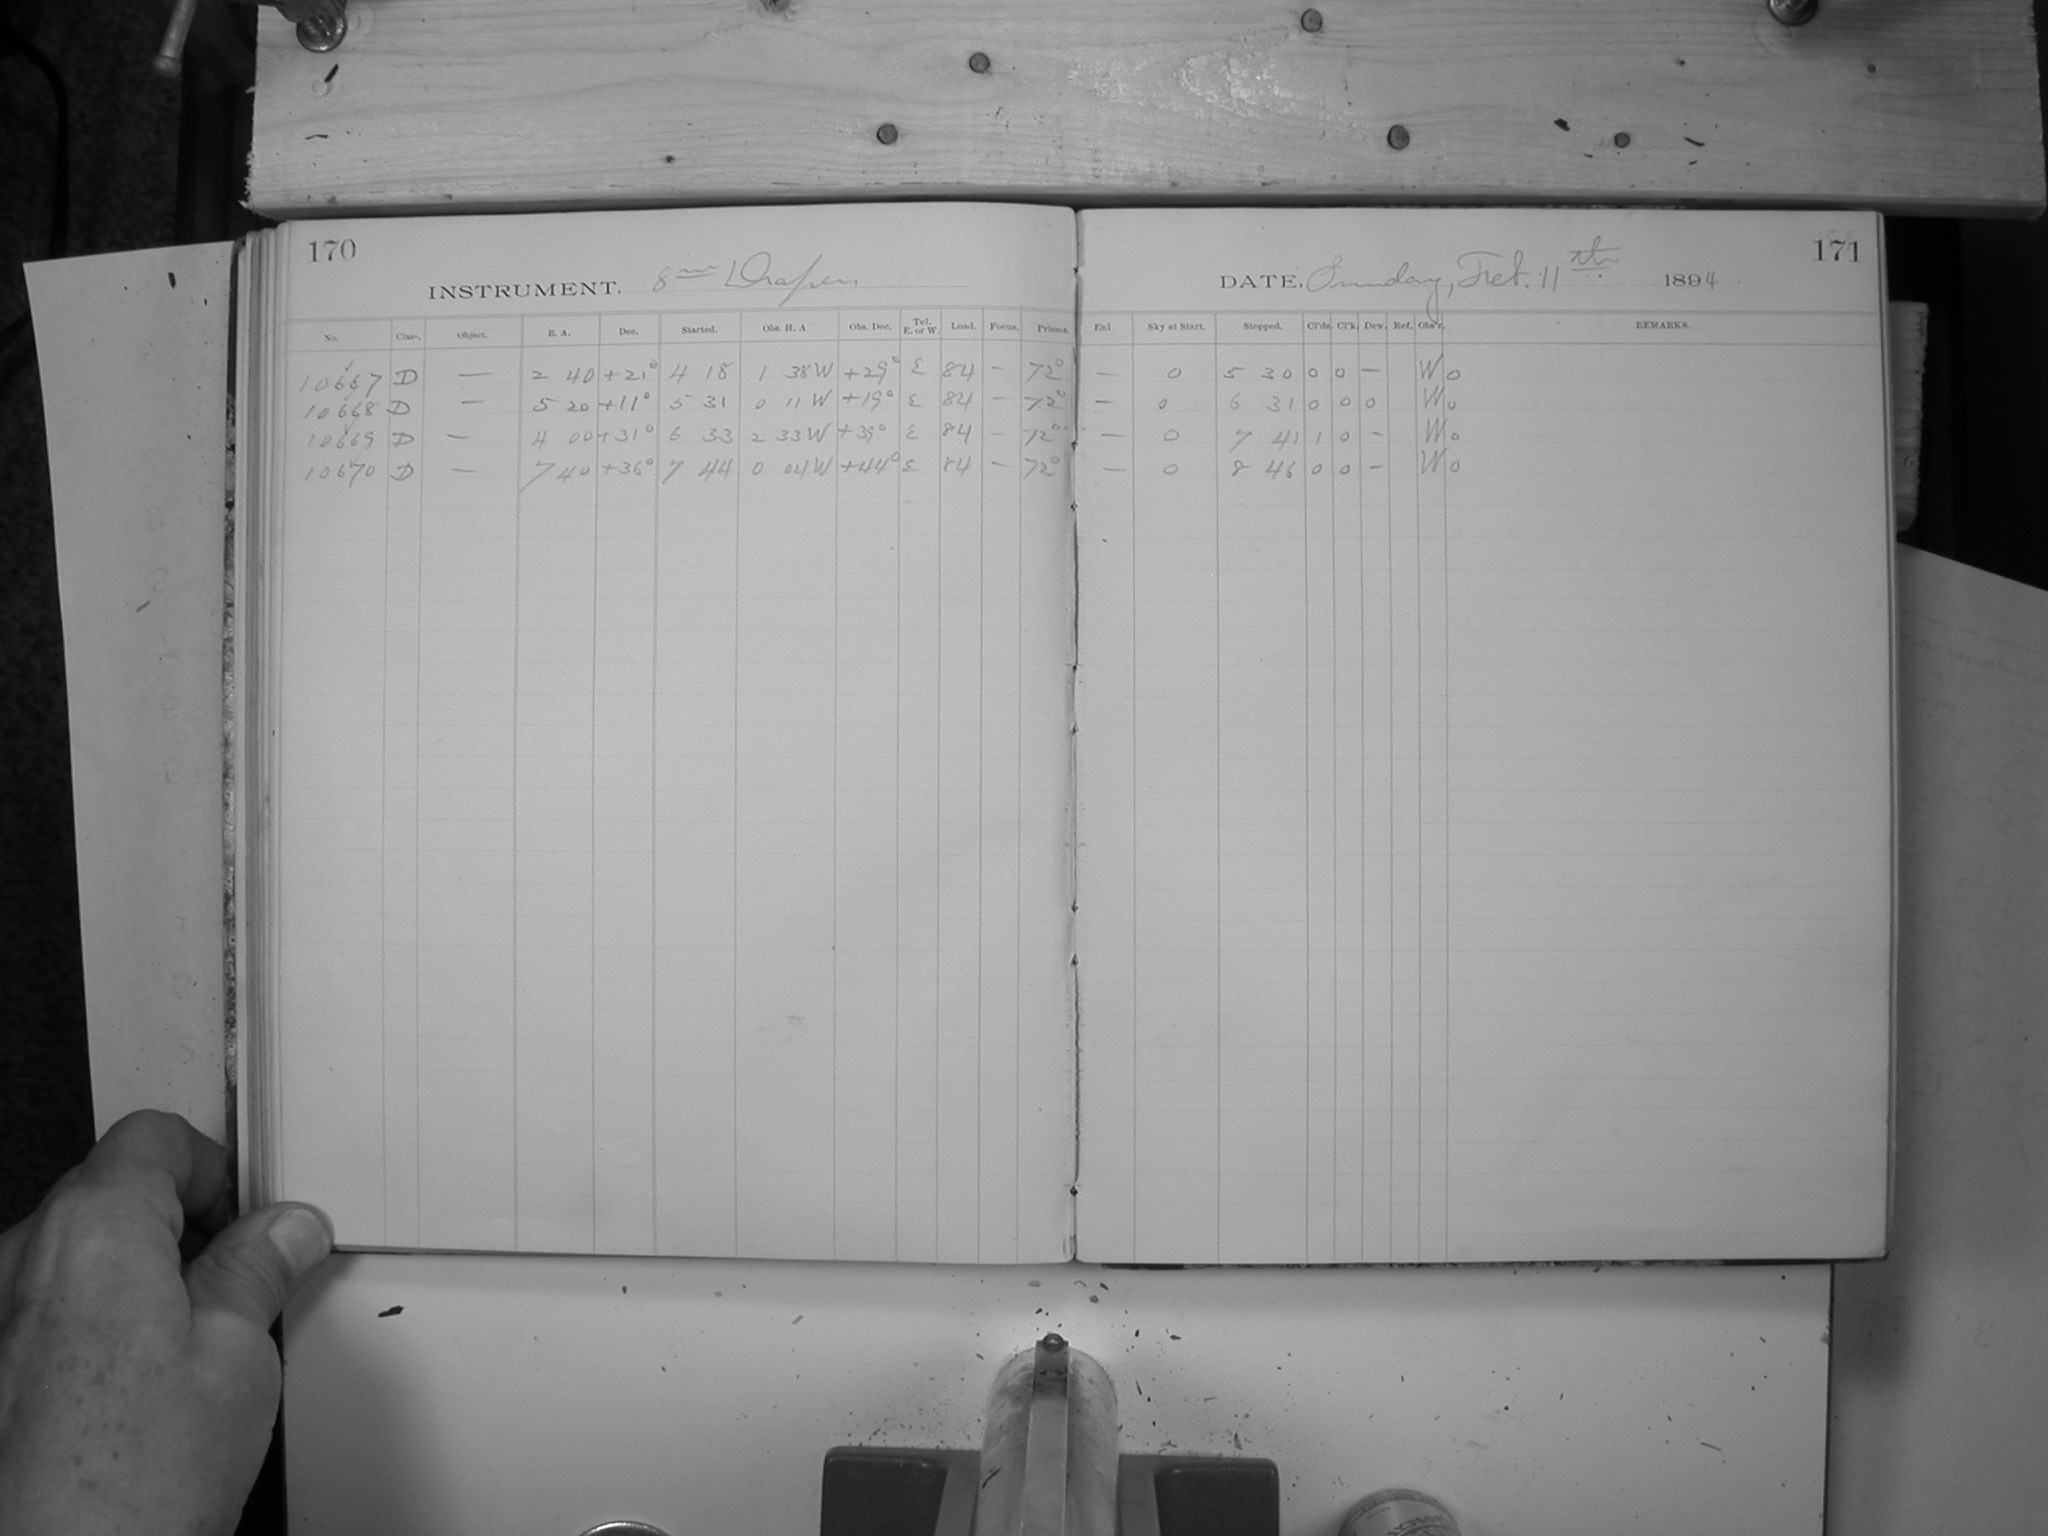 170
INSTRUMENT. 8 in Draper
No. Class. Object. R. A. Dec. Started. Obs. H. A. Obs. Dec. Tel. E. or W. Load. Focus. Prisms.
10667 D — 2 40 +21° 4 18 1 38 W +29° E 84 – 72°
10668 D — 5 20 +11° 5 31 0 11 W +19° E 84 – 72°
10669 D — 4 00 +31° 6 33 2 33 W +39° E 84 – 72°
10670 D — 7 40 +36° 7 44 0 04 W +44° E 84 – 72°
171
DATE, Sunday, Feb. 11th 1894
Enl Sky at Start. Stopped. Cl'ds. Cl'k. Dew. Ref. Obs'r. REMARKS.
— 0 5 30 0 0 – W 0
— 0 6 31 0 0 0 W 0
— 0 7 41 1 0 – W 0
— 0 8 46 0 0 – W 0